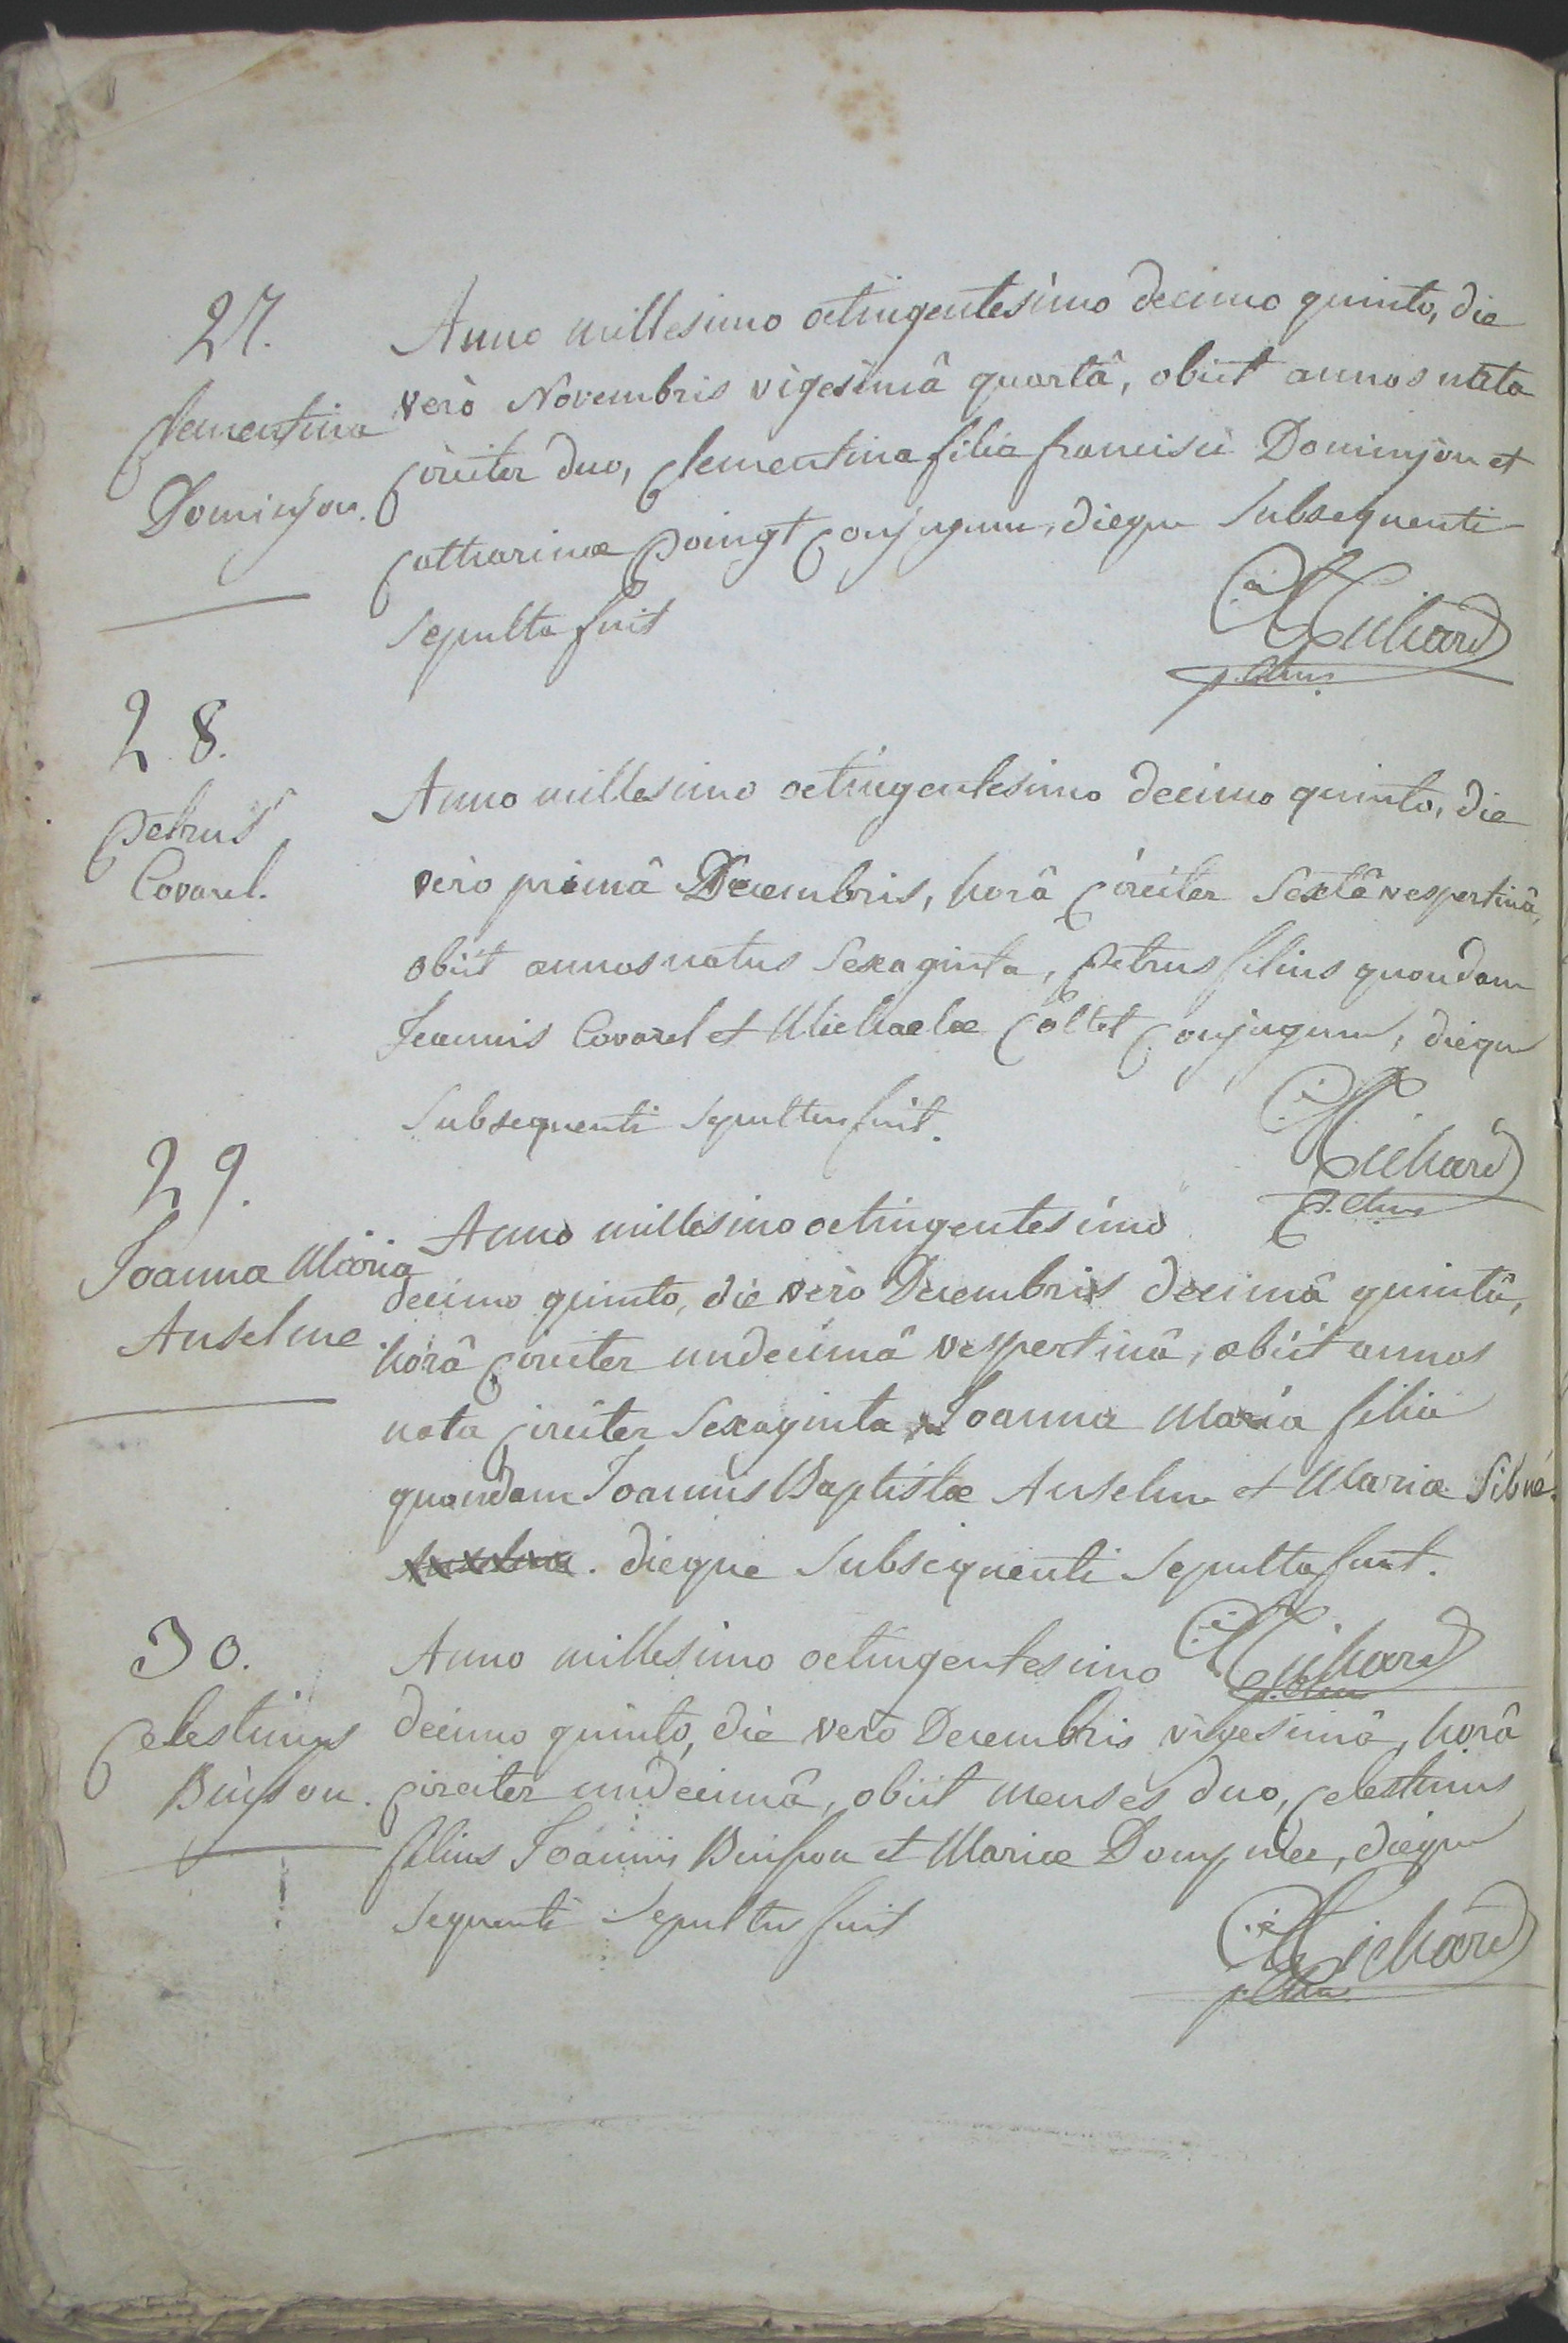 27.
Clementina
Dominjon.
Anno millesimo octingentesimo decimo quinto, die
verò Novembris vigesimâ quartâ, obiit annos nata
Circiter duo, Clementina filia francisci Dominjon et
Catharinæ Poingt Conjugum, dieque Subsequenti
Sepulta fuit
Richard
28.
Petrus
Covarel.
Anno millesimo octingentesimo decimo quinto, die
verò primâ Decembris, horâ Circiter Sextâ vespertinâ,
obiit annos natus Sexaginta, Petrus filius quondam
Joannis Covarel et Michaelæ Coltet Conjugum, dieque
Subsequenti Sepultus fuit.
Richard
29.
Joanna Maria
Anselme
Anno millesimo octingentesimo
decimo quinto, die verò Decembris decimâ quintâ,
horâ Circiter undecimâ vespertinâ, obiit annos
nata Circiter Sexaginta Joanna Maria filia
quondam Joannis Baptistæ Anselme et Mariæ
dieque Subsequenti Sepulta fuit.
Richard
30.
Celestinus
Buisson.
Anno millesimo octingentesimo
decimo quinto, die verò Decembris vigesimâ, horâ
Circiter undecimâ, obiit menses duo, Celestinus
filius Joannis Buisson et Mariæ dieque
Sequenti Sepultus fuit
Richard